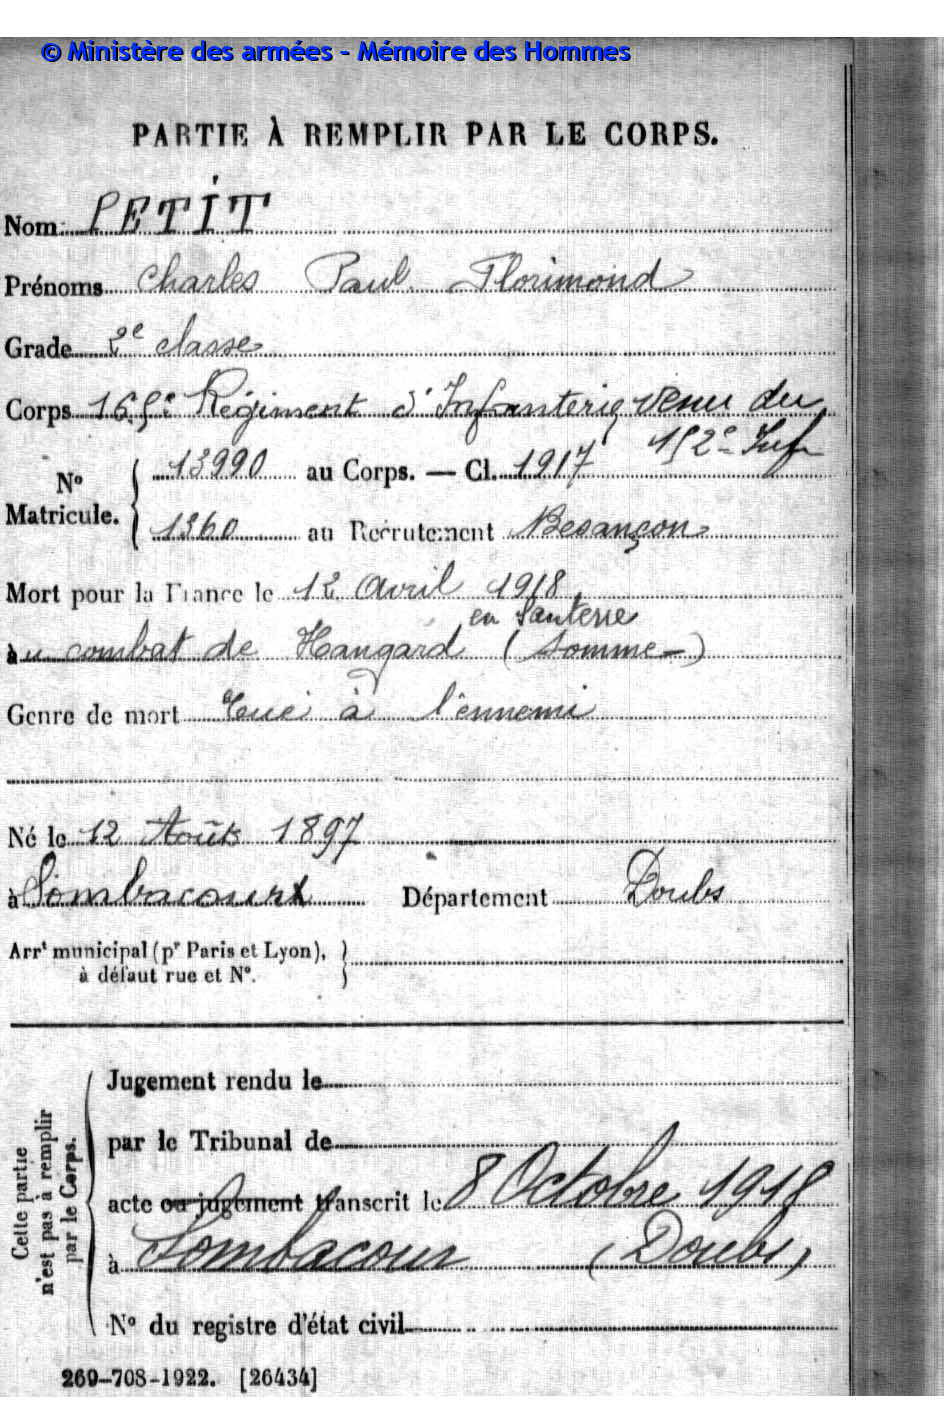 © Ministère des armées - Mémoire des Hommes
PARTIE À REMPLIR PAR LE CORPS.
Nom PETIT
Prénoms Charles Paul Florimond
Grade 2e classe
Corps 165e Régiment d'Infanterie venu du
152e Inf
No Matricule. { 13990 au Corps. — Cl. 1917
1360 au Recrutement Besançon
Mort pour la France le 12 Avril 1918
en Santerre
au combat de Hangard (Somme)
Genre de mort Tué à l'ennemi
Né le 12 Août 1897
à Sombacourt Département Doubs
Arrt municipal (pr Paris et Lyon),
à défaut rue et No.
Cette partie
n'est pas à remplir
par le Corps.
Jugement rendu le
par le Tribunal de
acte ou jugement transcrit le 8 Octobre 1918
à Sombacour (Doubs)
No du registre d'état civil
269-708-1922. [26434]